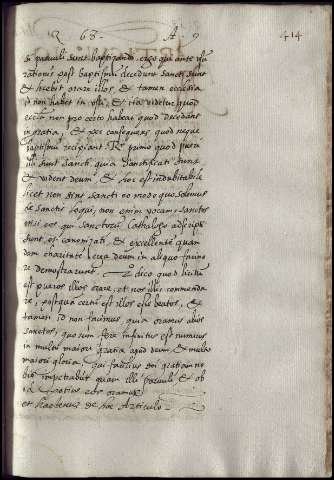 Q 68. A. 9 414
si paruuli sunt baptizandi. ergo qui ante usu
rationis post baptismum decedunt sancti sunt
et licebit orare illos, et tamen ecclesia
id non habet in usu, et ita videtur quod
eccla non pro certo habeat quod decedant
in gratia, et per consequens quod neque
baptismum recipiant. Rr primo quod pueri
illi sunt sancti, quia sanctificati sunt
et vident deum et hoc est indubitabile
licet non sint sancti eo modo quo solemus
de sanctis loqui, non enim vocamus sanctos
nisi eos qui sanctorum Cathalogo adscripti
sunt, et canonizati, et excellente quan
dam charitate erga deum in aliquo facino
re demostrarunt. 2o dico quod licitu
est pueros illos orare, et nos illis commenda
re, postquam certu est illos esse beatos, et
tamen id non facimus, quia oramus alios
sanctos, quorum fere infinitus est numerus
in multo maiori gratia apud deum et multo
maiori gloria, qui facilius dei gratiam no
bis impetrabunt quam illi paruuli, et ob
id potius eos oramus
et haectenus de hoc Articulo